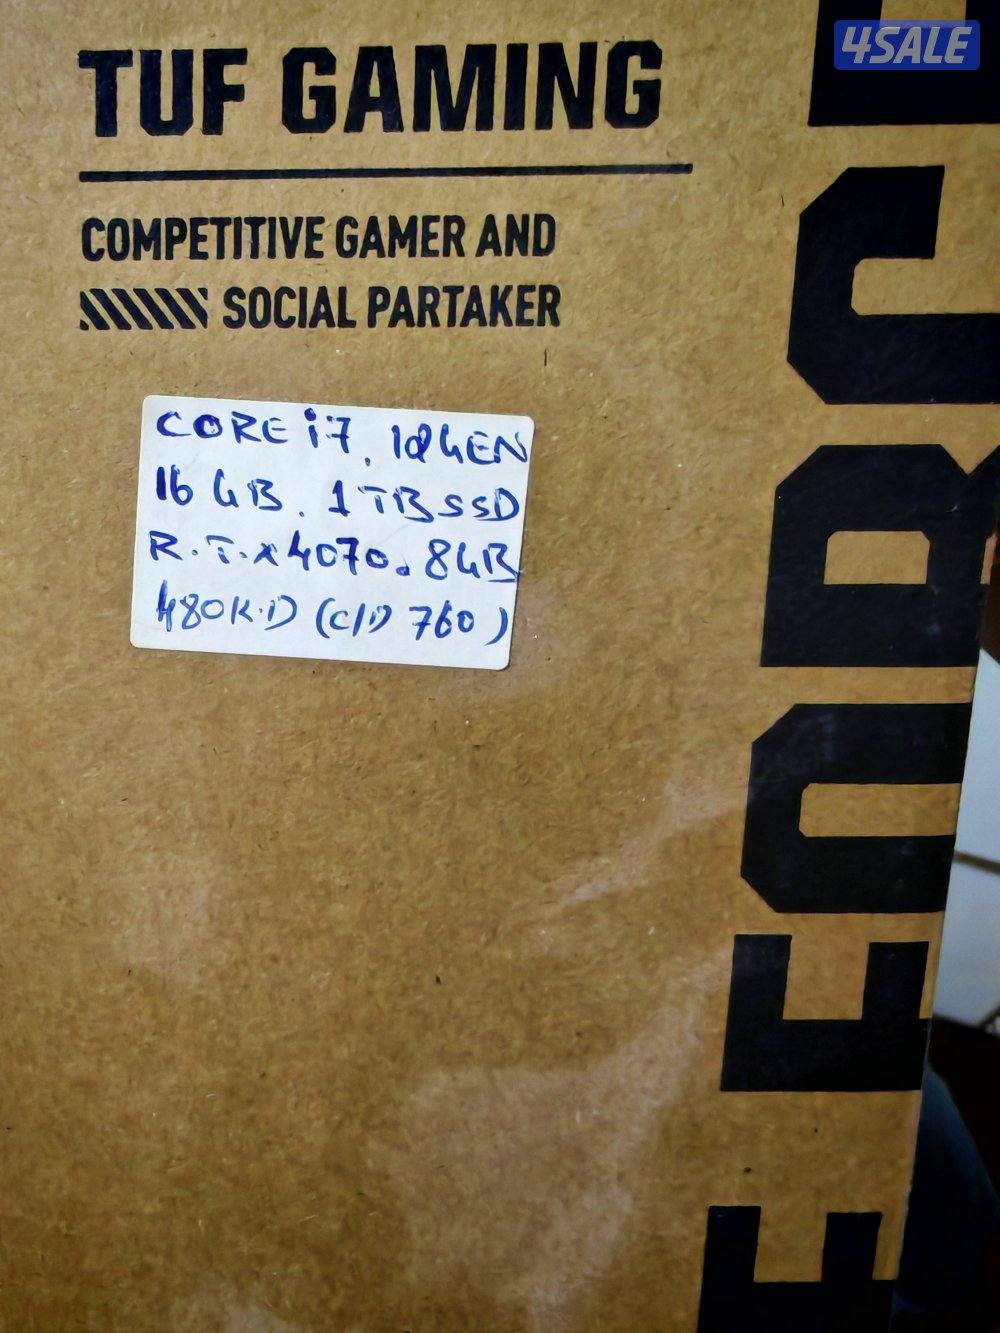 4SALE
TUF GAMING
COMPETITIVE GAMER AND
SOCIAL PARTAKER
CORE i7.
16 GB. 1TB SSD
R.T.X4070. 8GB
480K.D (C/D 760)